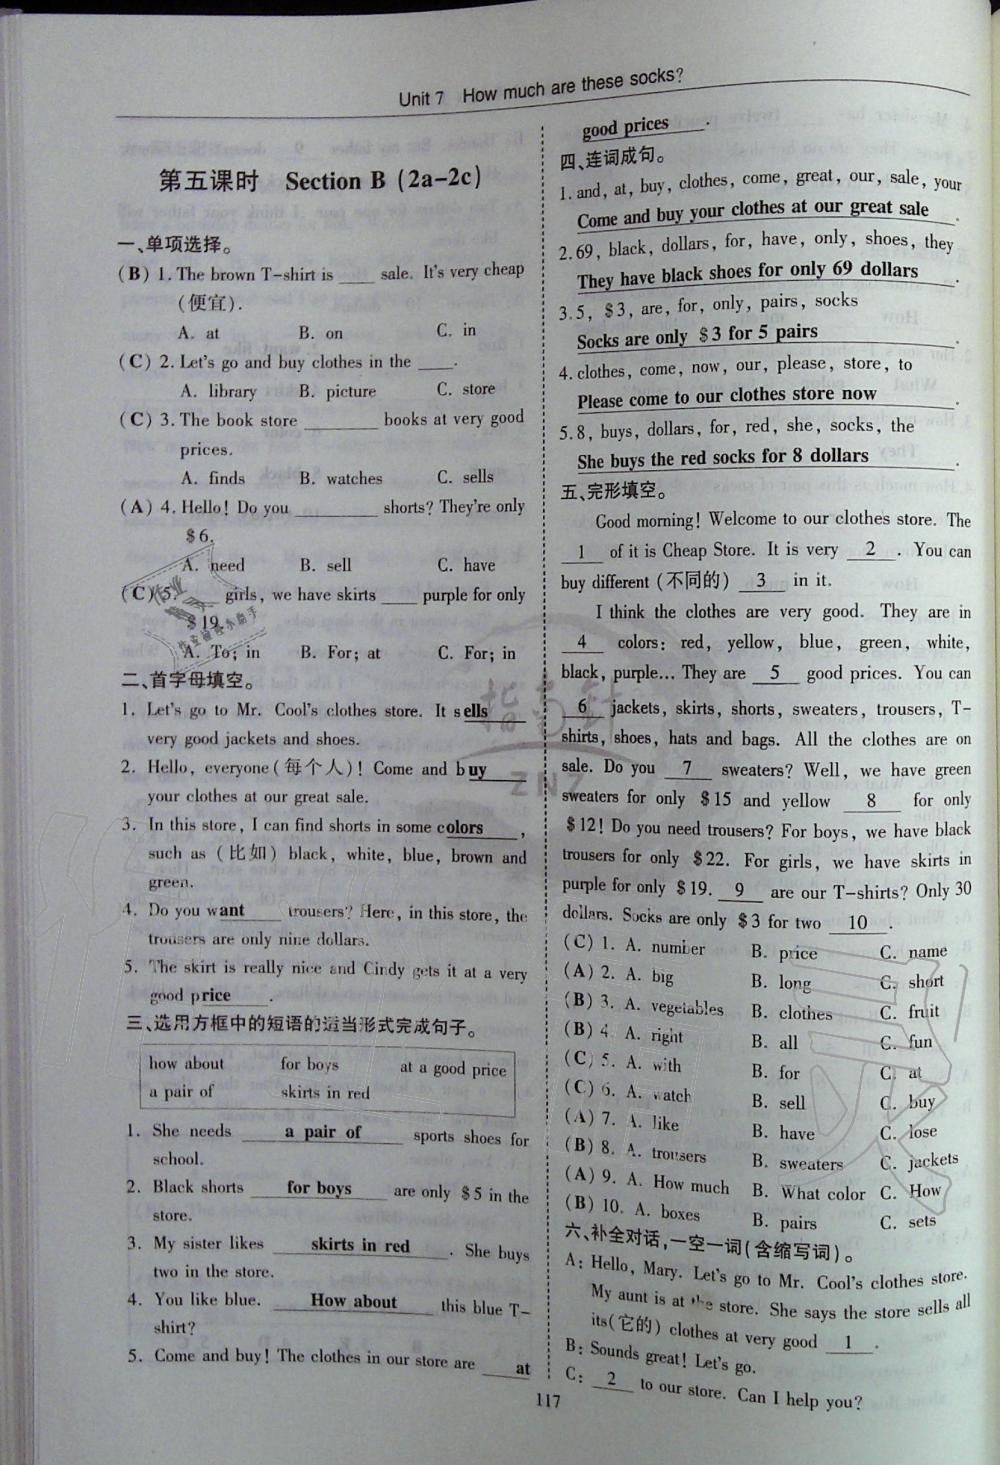 Unit 7 How much are these socks?
第五课时 Section B (2a-2c)
一、单项选择。
(B) 1. The brown T-shirt is ____ sale. It's very cheap
(便宜).
A. at B. on C. in
(C) 2. Let's go and buy clothes in the ____.
A. library B. picture C. store
(C) 3. The book store ________ books at very good
prices.
A. finds B. watches C. sells
(A) 4. Hello! Do you ________ shorts? They're only
$6.
A. need B. sell C. have
(C) 5. ____ girls, we have skirts ____ purple for only
$19.
A. To; in B. For; at C. For; in
二、首字母填空。
1. Let's go to Mr. Cool's clothes store. It sells
very good jackets and shoes.
2. Hello, everyone(每个人)! Come and buy
your clothes at our great sale.
3. In this store, I can find shorts in some colors,
such as (比如) black, white, blue, brown and
green.
4. Do you want trousers? Here, in this store, the
trousers are only nine dollars.
5. The skirt is really nice and Cindy gets it at a very
good price.
三、选用方框中的短语的适当形式完成句子。
how about for boys at a good price
a pair of skirts in red
1. She needs a pair of sports shoes for
school.
2. Black shorts for boys are only $5 in the
store.
3. My sister likes skirts in red. She buys
two in the store.
4. You like blue. How about this blue T-
shirt?
5. Come and buy! The clothes in our store are at
good prices.
四、连词成句。
1. and, at, buy, clothes, come, great, our, sale, your
Come and buy your clothes at our great sale.
2. 69, black, dollars, for, have, only, shoes, they
They have black shoes for only 69 dollars.
3. 5, $3, are, for, only, pairs, socks
Socks are only $3 for 5 pairs.
4. clothes, come, now, our, please, store, to
Please come to our clothes store now.
5. 8, buys, dollars, for, red, she, socks, the
She buys the red socks for 8 dollars.
五、完形填空。
Good morning! Welcome to our clothes store. The
1 of it is Cheap Store. It is very 2. You can
buy different (不同的) 3 in it.
I think the clothes are very good. They are in
4 colors: red, yellow, blue, green, white,
black, purple... They are 5 good prices. You can
6 jackets, skirts, shorts, sweaters, trousers, T-
shirts, shoes, hats and bags. All the clothes are on
sale. Do you 7 sweaters? Well, we have green
sweaters for only $15 and yellow 8 for only
$12! Do you need trousers? For boys, we have black
trousers for only $22. For girls, we have skirts in
purple for only $19. 9 are our T-shirts? Only 30
dollars. Socks are only $3 for two 10.
(C) 1. A. number B. price C. name
(A) 2. A. big B. long C. short
(B) 3. A. vegetables B. clothes C. fruit
(B) 4. A. right B. all C. fun
(C) 5. A. with B. for C. at
(C) 6. A. watch B. sell C. buy
(A) 7. A. like B. have C. lose
(B) 8. A. trousers B. sweaters C. jackets
(A) 9. A. How much B. What color C. How
(B) 10. A. boxes B. pairs C. sets
六、补全对话,一空一词(含缩写词)。
A: Hello, Mary. Let's go to Mr. Cool's clothes store.
My aunt is at the store. She says the store sells all
its(它的) clothes at very good 1.
B: Sounds great! Let's go.
C: 2 to our store. Can I help you?
117
指南针
ZNZ